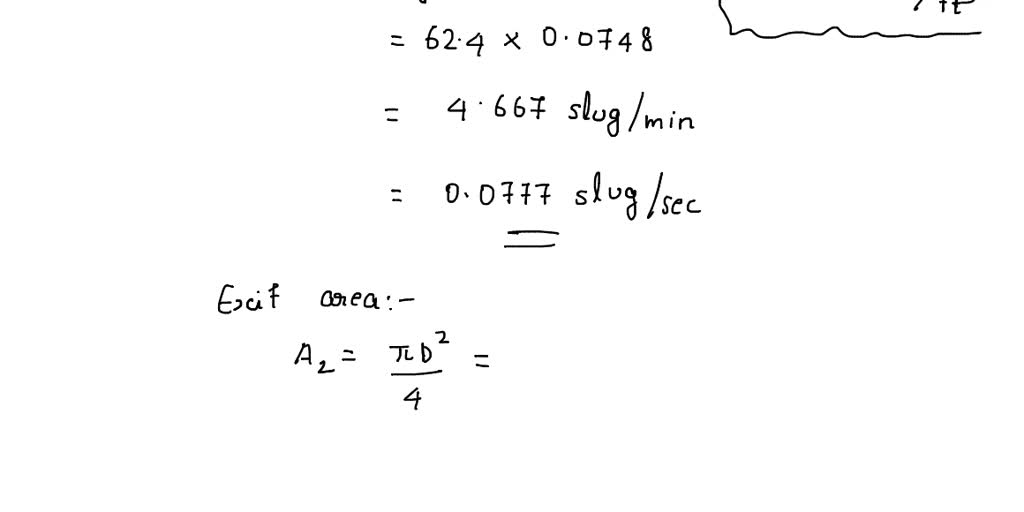 = 62.4 × 0.0748
= 4.667 slug/min
= 0.0777 slug/sec
Exit area:-
A₂ = πD²/4 =